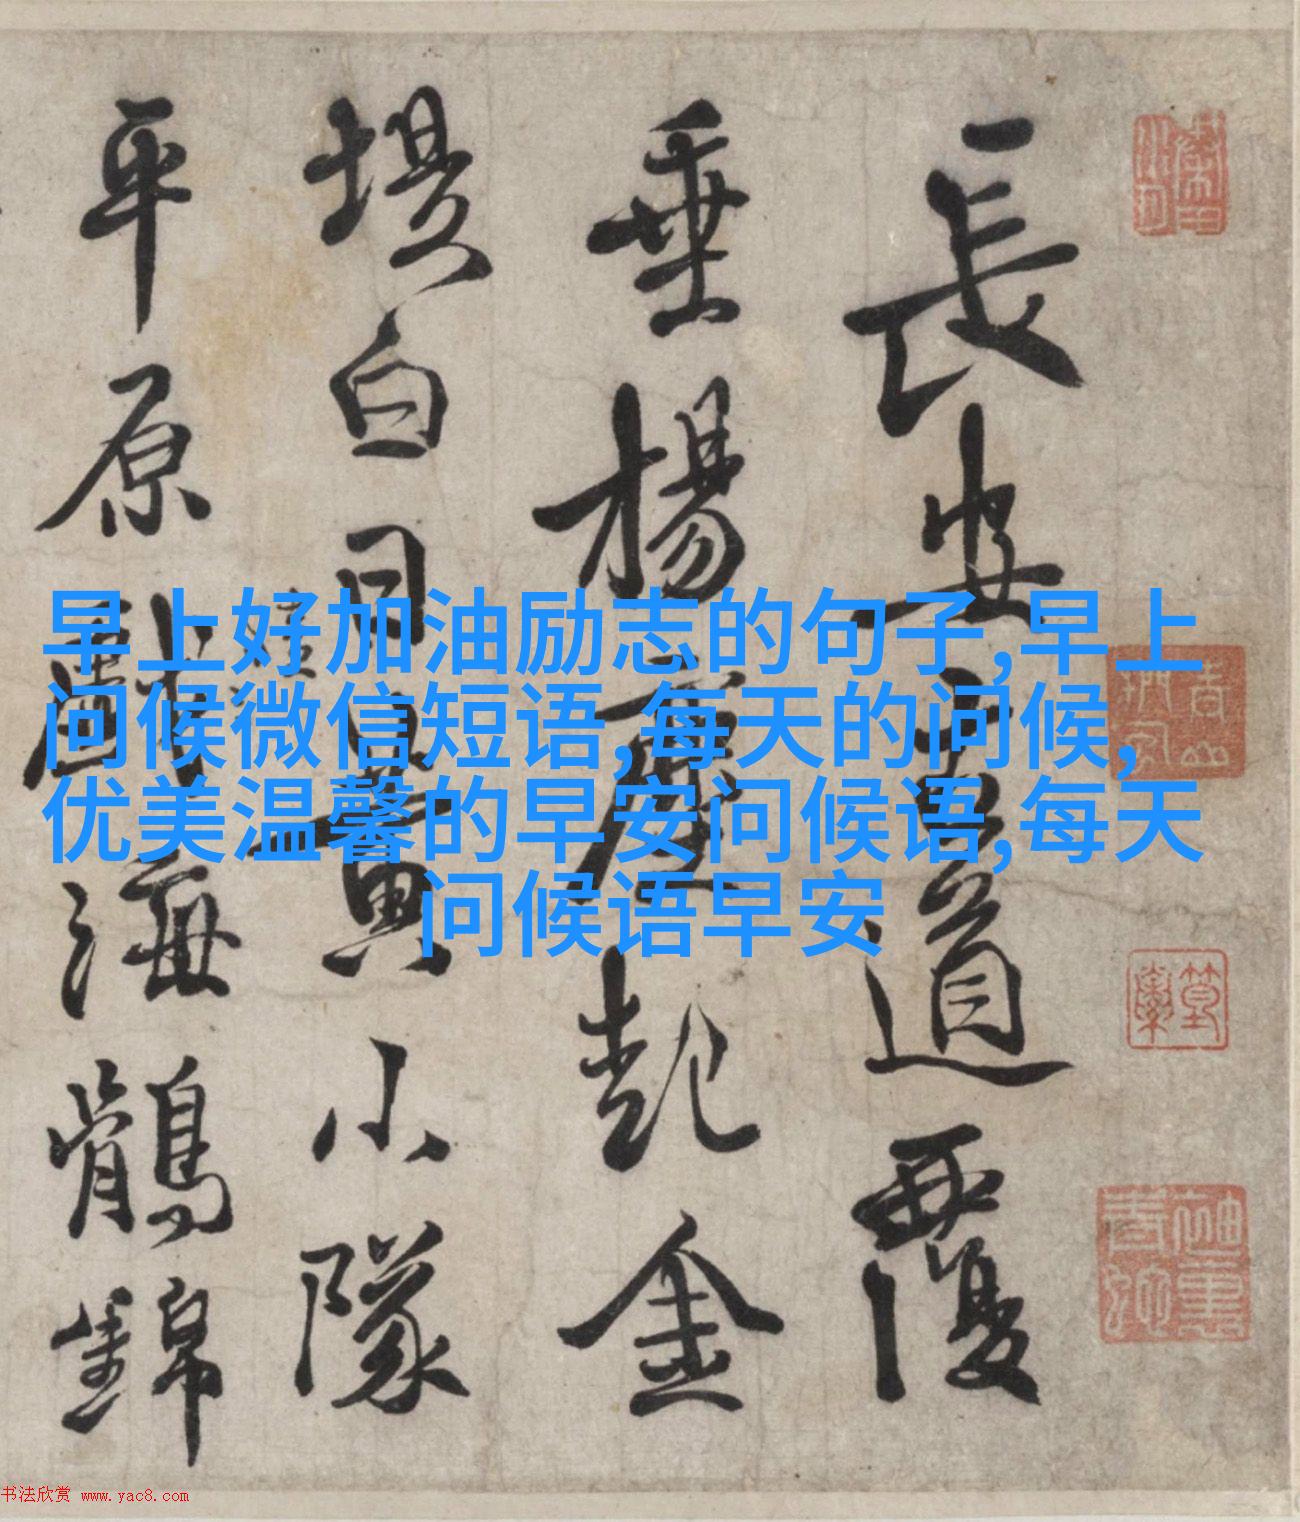 早上好加油励志的句子,早上
问候微信短语,每天的问候,
优美温馨的早安问候语,每天
问候语早安
長安道覆
垂楊塵起金
堤白日小隊
平原海鶻錦
书法欣赏 www.yac8.com